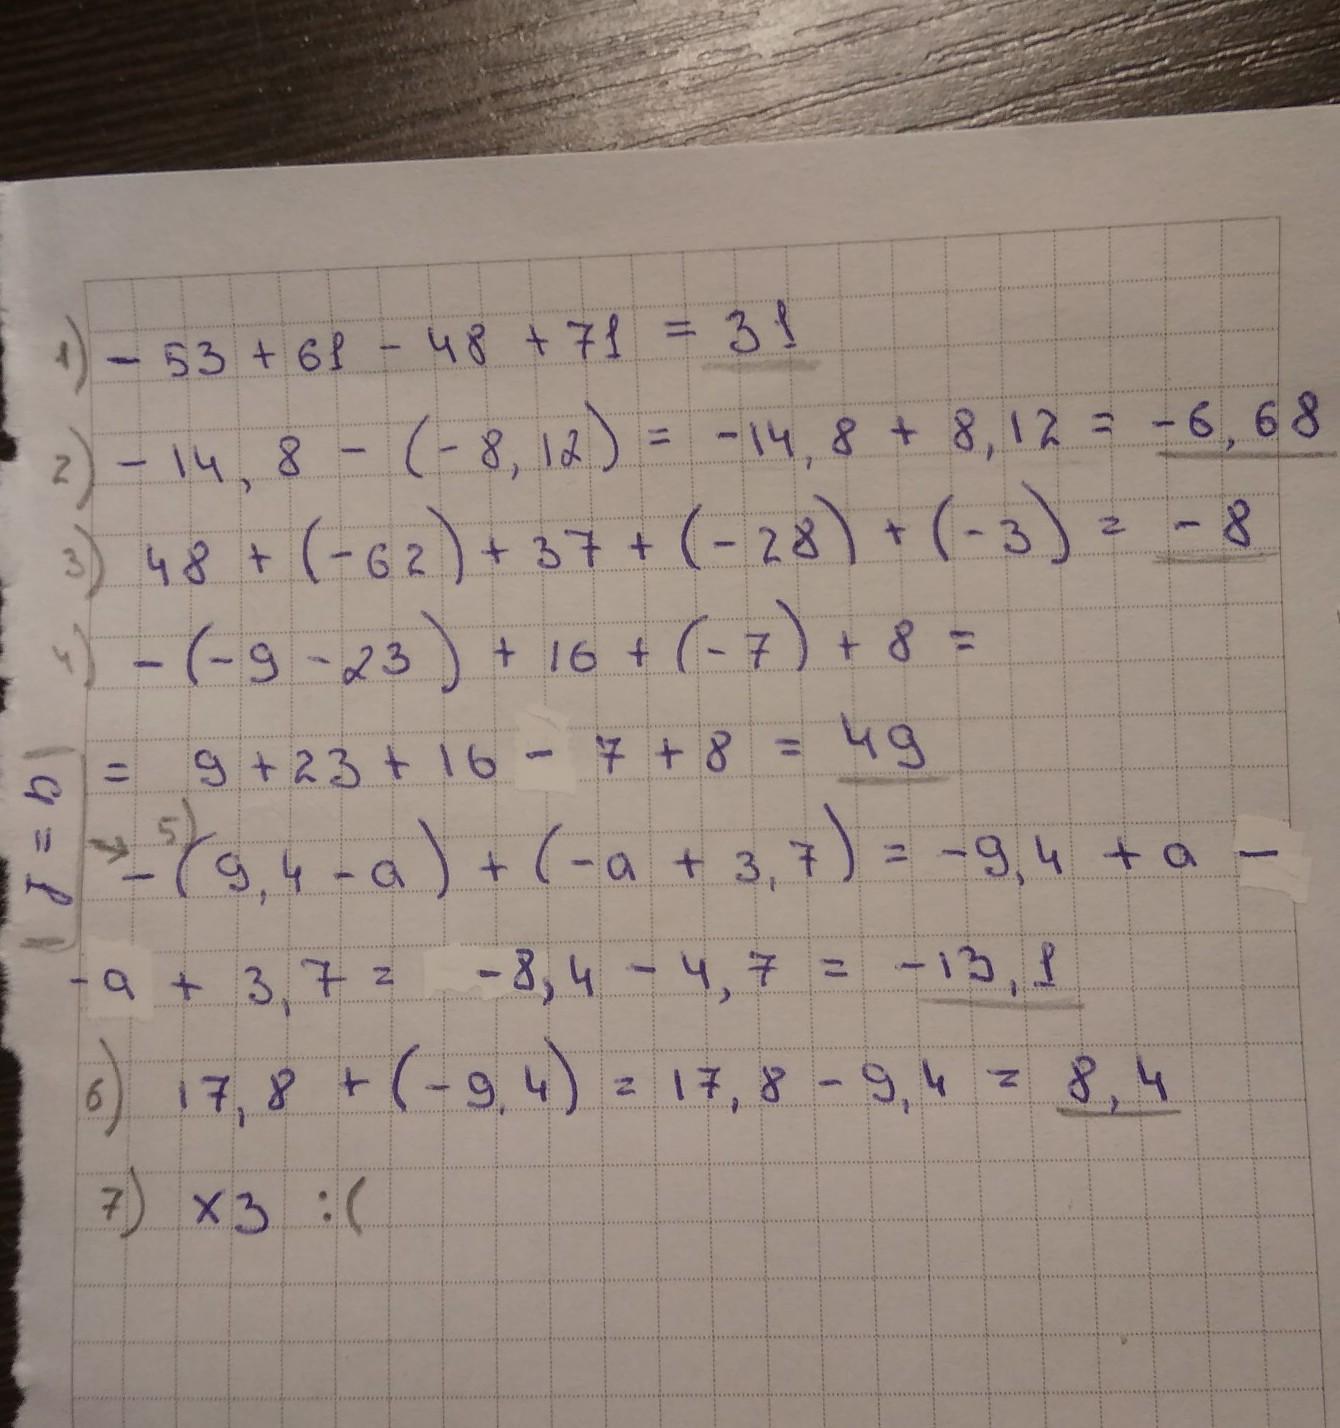 1) - 53 + 61 - 48 + 71 = 31
2) - 14,8 - (-8,12) = -14,8 + 8,12 = -6,68
3) 48 + (-62) + 37 + (-28) + (-3) = -8
4) - (-9 - 23) + 16 + (-7) + 8 =
= 9 + 23 + 16 - 7 + 8 = 49
→ 5) - (9,4 - a) + (-a + 3,7) = -9,4 + a -
- a + 3,7 = -8,4 - 4,7 = -13,1
6) 17,8 + (-9,4) = 17,8 - 9,4 = 8,4
7) х3 :(